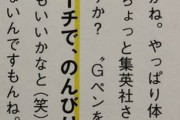 かね。やっぱり体
ちょっと集英社さ
うか? 〝Gペンを
ーチで、のんびり
もいいかなと(笑)
ないんですもんね。